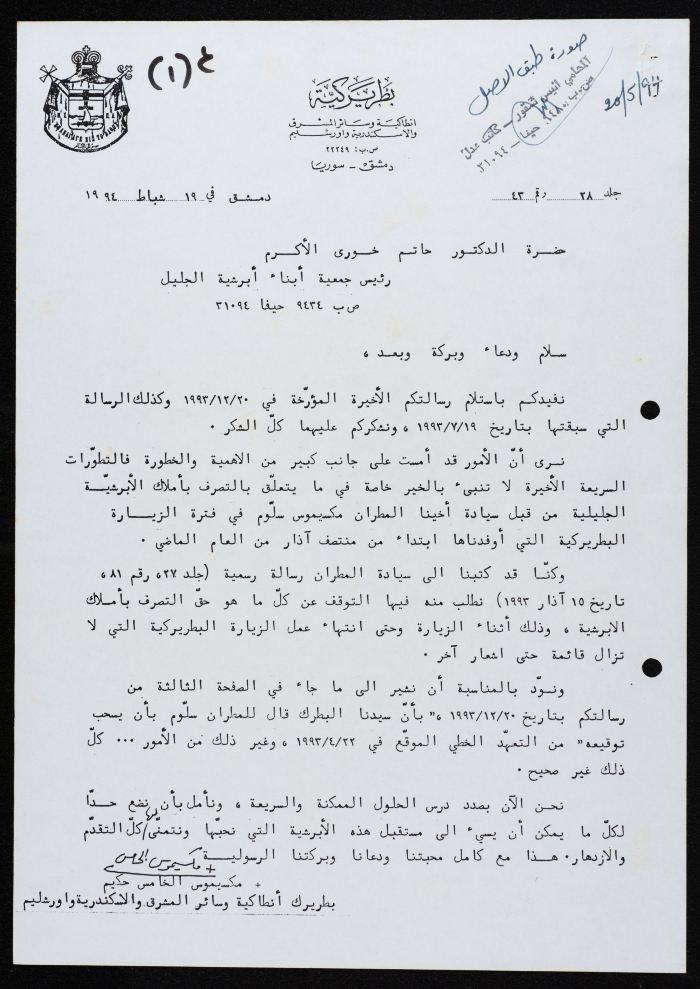 ٤ (١)
صورة طبق الاصل
20/5/94
بطريركية
انطاكية وسائر المشرق
والاسكندرية واورشليم
ص.ب: ٢٢٢٤٩
دمشق - سوريا
جلد ٢٨ رقم ٤٣
دمشق في ١٩ شباط ١٩٩٤
حضرة الدكتور حاتم خورى الأكرم
رئيس جمعية أبناء أبرشية الجليل
ص ب ٩٤٣٤ حيفا ٣١٠٩٤
سلام ودعاء وبركة وبعد ،
نفيدكم باستلام رسالتكم الأخيرة المؤرّخة في ١٩٩٣/١٢/٢٠ وكذلك الرسالة
التي سبقتها بتاريخ ١٩٩٣/٧/١٩ ، ونشكركم عليهما كلّ الشكر .
نرى أنّ الأمور قد أمست على جانب كبير من الاهمية والخطورة فالتطوّرات
السريعة الأخيرة لا تنبىء بالخير خاصة في ما يتعلّق بالتصرف بأملاك الأبرشيّة
الجليلية من قبل سيادة أخينا المطران مكسيموس سلّوم في فترة الزيارة
البطريركية التي أوفدناها ابتداء من منتصف آذار من العام الماضي .
وكنّا قد كتبنا الى سيادة المطران رسالة رسمية (جلد ٢٧، رقم ٨١ ،
تاريخ ١٥ آذار ١٩٩٣) نطلب منه فيها التوقف عن كلّ ما هو حقّ التصرف بأملاك
الابرشية ، وذلك أثناء الزيارة وحتى انتهاء عمل الزيارة البطريركية التي لا
تزال قائمة حتى اشعار آخر .
ونودّ بالمناسبة أن نشير الى ما جاء في الصفحة الثالثة من
رسالتكم بتاريخ ١٩٩٣/١٢/٢٠ ،" بأنّ سيدنا البطرك قال للمطران سلّوم بأن يسحب
توقيعه" من التعهّد الخطي الموقّع في ١٩٩٣/٤/٢٢ ، وغير ذلك من الأمور ... كلّ
ذلك غير صحيح .
نحن الآن بصدد درس الحلول الممكنة والسريعة ، ونأمل بأن نضع حدّا
لكلّ ما يمكن أن يسيء الى مستقبل هذه الأبرشية التي نحبّها ونتمنّى لها كلّ التقدّم
والازدهار. هذا مع كامل محبتنا ودعانا وبركتنا الرسولية
+ مكسيموس الخامس
+ مكسيموس الخامس حكيم
بطريرك أنطاكية وسائر المشرق والاسكندرية واورشليم